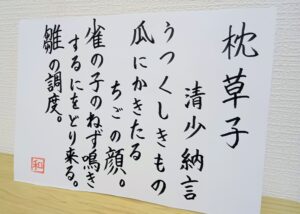 枕草子
清少納言
うつくしきもの
瓜にかきたる
ちごの顔。
雀の子のねず鳴き
するにをどり来る。
雛の調度。
和